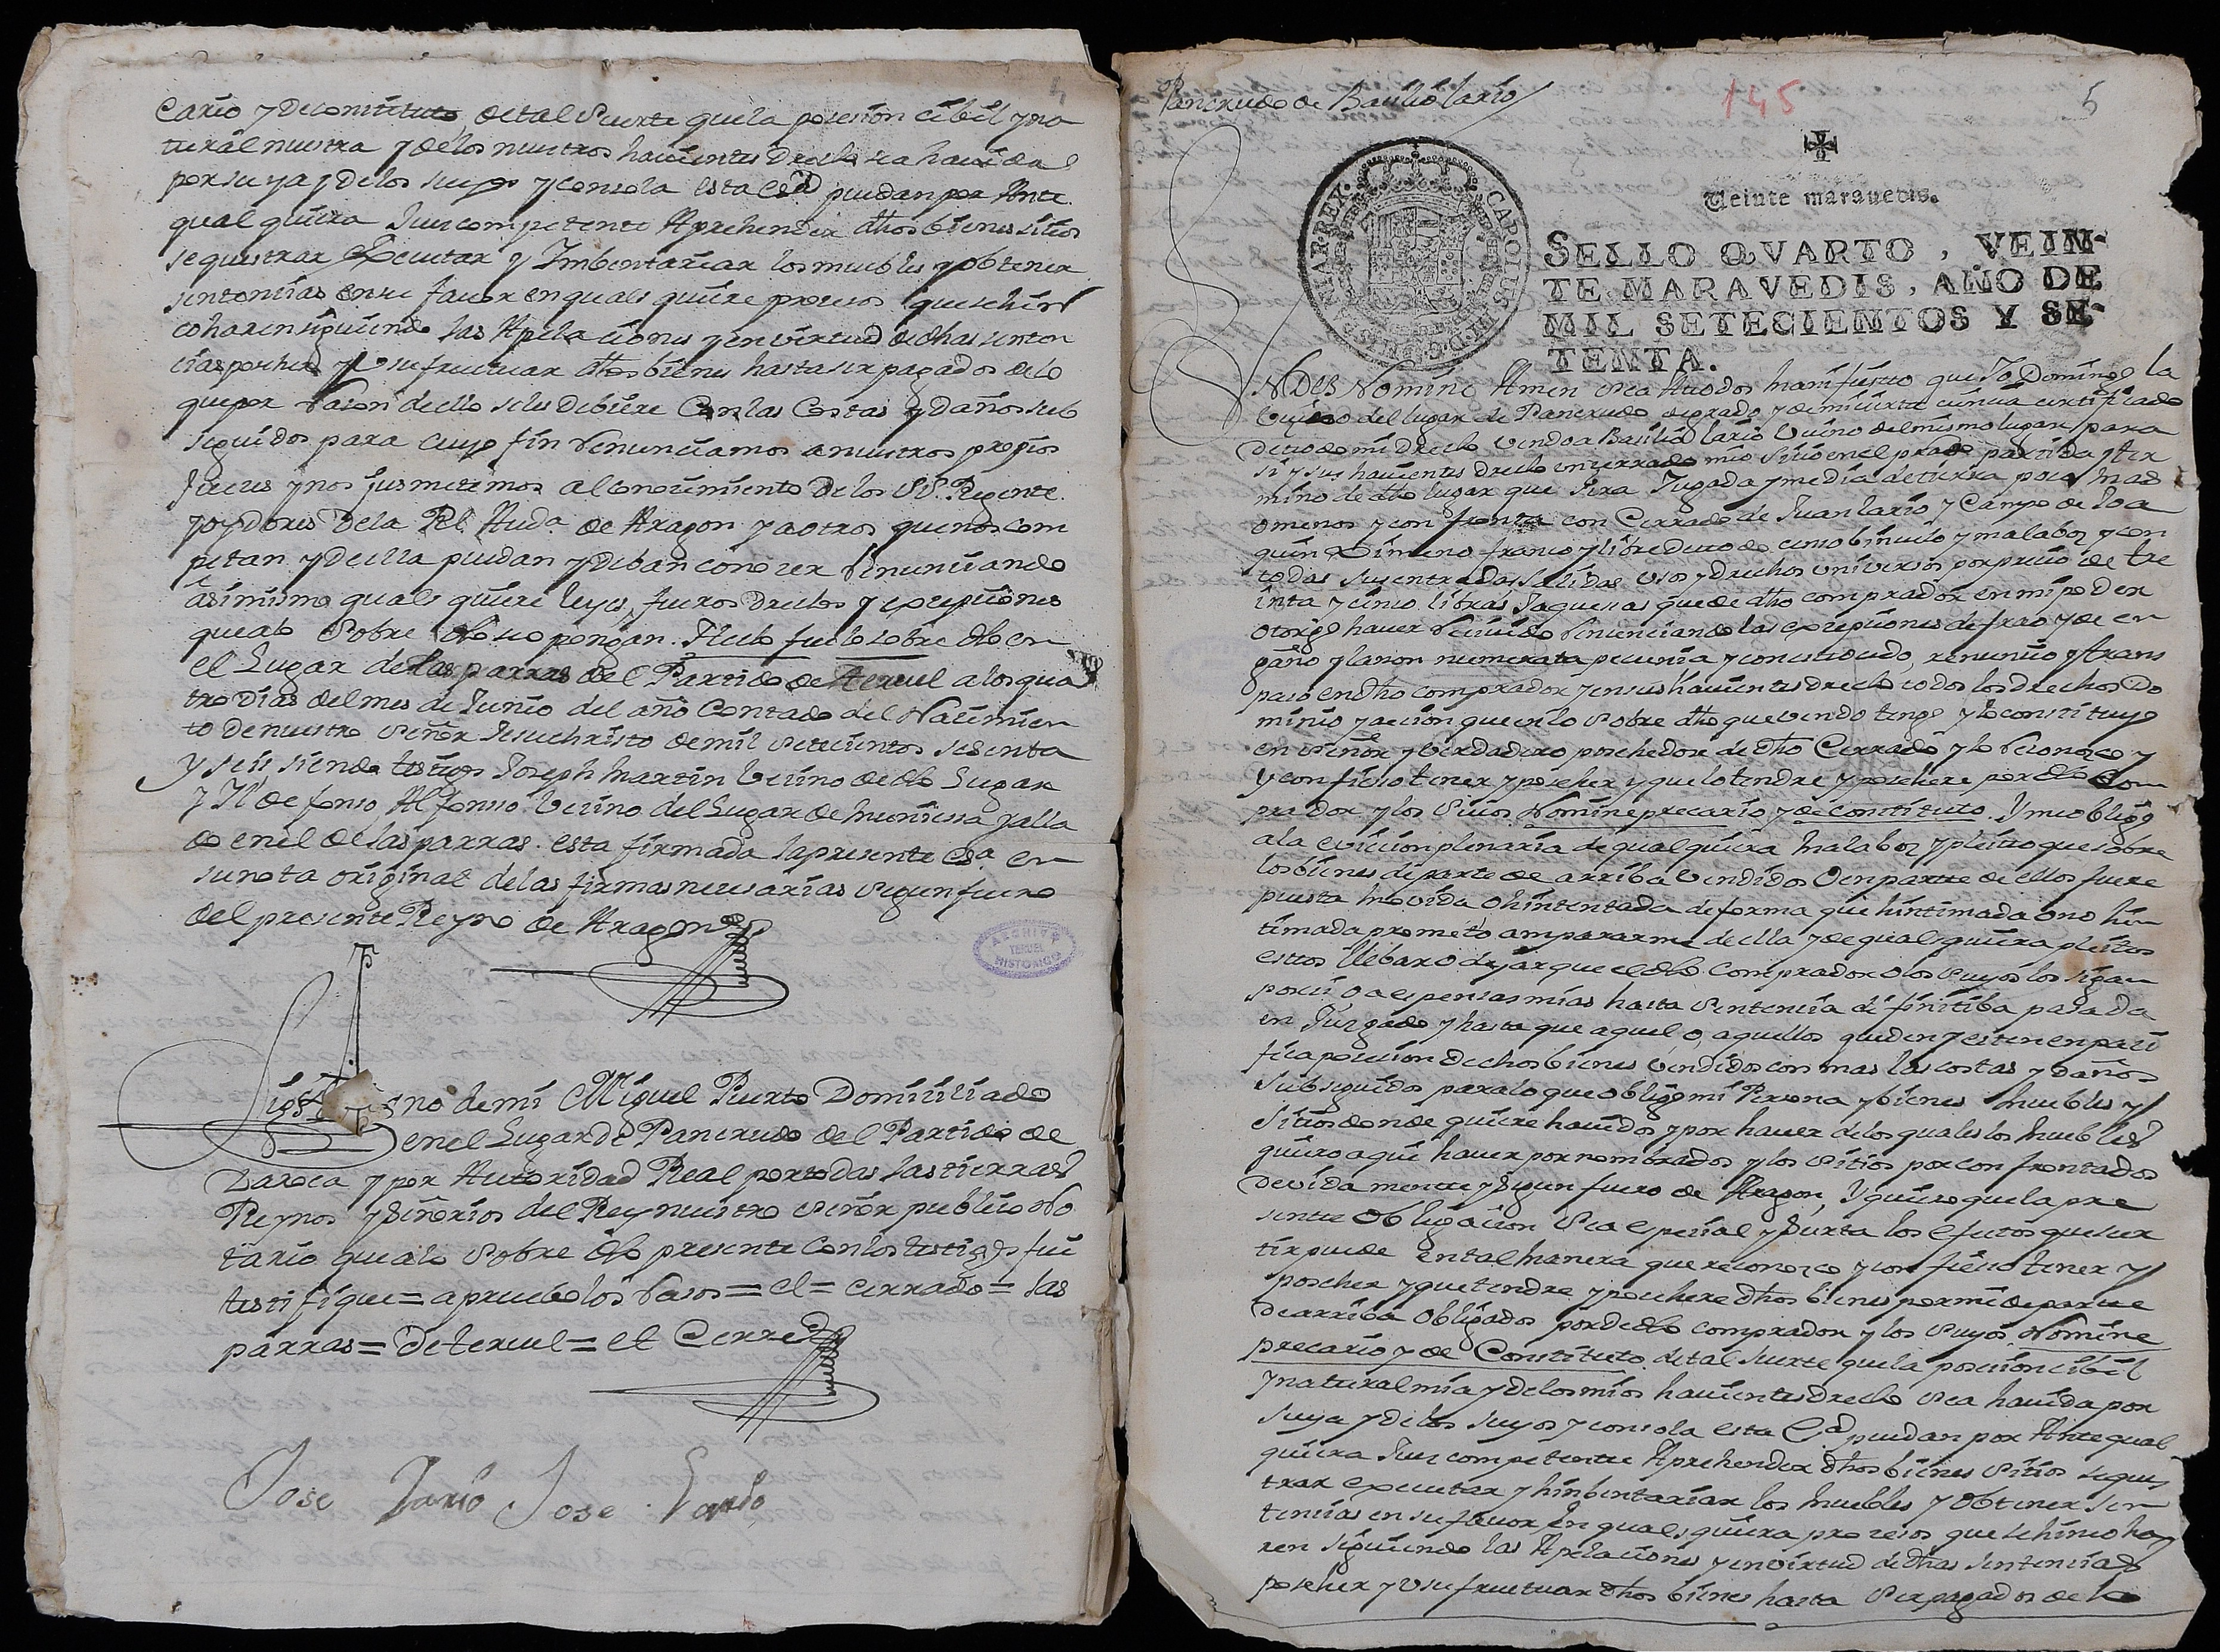 4
cario y De constituto detal Suerte quela posesion cibil y na
tural nuestra y delos nuestros havientes drecho sea havida
por suya y delos suyos y consola esta Csª puedan por Ante
qual quiera Juez competente Aprehender dhos bienes sitios
sequestrar Executar y Imbentariar los muebles y obtener
sentencias ensu favor en quales quiere procesos que se hini
coharen siguiendo las Apelaciones y en virtud de dhas senten
cias posehed y Usufructuar dhos bienes hasta ser pagados delo
que por Rason de ello seles Debiere Con las Costas y Daños sub
seguidos para cuyo fin Renunciamos a nuestros propios
Jueces y nos jusmetemos al conocimiento De los SS. Regente
y oydores Dela Rl. Audª de Aragon y a otros que nos com
petan y De ella puedan y Deban conocer Renunciando
asimismo quales quiere leyes, fueros Drechos y excepciones
que alo Sobre dho se opongan. Hecho fue lo sobre dho en
el Lugar de las parras del Partido de Teruel a los qua
tro Dias del mes de Junio del año Contado del Nacimien
to de nuestro Señor Jesuchristo de mil Setecientos sesenta
y seis siendo testigos Joseph Martin Vecino de dho Lugar
y Ildefonso Alfonso Vecino del Lugar de Muniessa y alla
do en el de las parras. esta firmada la presente esª en
su nota original de las firmas necesarias Segun fuero
del presente Reyno de Aragon
ARCHIVO
TERUEL
HISTORICO
Sig no de mi Miguel Puerto Domiciliado
en el Lugar de Pancrudo del Partido de
Daroca y por Autoridad Real por todas las tierras
Reynos y Señorios del Rey nuestro Señor publico No
tario que alo Sobre dho presente con los testigos fui
testifique = apruebo los Rasos = el = cerrado = las
parras = De teruel = et Cerre
Jose Lario Jose Lario
Pancrudo de Basilio Lario
145
5
Veinte maravedis.
CAROLUS III D. G. HISPANIAR. REX.
SELLO QVARTO, VEIN-
TE MARAVEDIS, AÑO DE
MIL SETECIENTOS Y SE-
TENTA.
IN DEI Nomine Amen Sea Atodos manifiesto que Yo Domingo la
Vecino del lugar de Pancrudo de grado y de mi cierta ciencia certificado
De todo mi Drecho Vendo a Basilio Lario Vecino del mismo lugar para
si y sus havientes drecho un cerrado mio Sitio en el prado partida y ter
mino de dho lugar que sera Jugada y media de tierra poco mas
o menos y confronta con Cerrado de Juan Lario y Campo de Joa
quin Ximeno franco y libre de todo censo binculo y malaboz y con
todas sus entradas Salidas usos y drechos universos por precio de tre
inta y cinco libras Jaquesas que de dho comprador en mi poder
otorgo haver Recivido Renunciando las excepciones de frao y de en
gaño y la non numerata pecunia y con esto cedo, renuncio y trans
paso en dho comprador y en sus havientes drecho todos los Drechos Do
minio y accion que en lo Sobre dho que vendo tengo y lo constituyo
en Señor y Verdadero posehedor de dho Cerrado y lo Reconozco y
y confieso tener y poseher y que lo tendre y posehere por dho com
prador y los Suios Nomine precario y de constituto. Y me obligo
a la eviccion plenaria de qual quiera Malaboz y pleito que sobre
los bienes de parte de arriba Vendidos O en parte de ellos fuere
puesta movida O hintentada de forma que hintimada o no hin
timada prometo ampararme de ella y de quales quiera pleitos
estos llebar o dejar que el dho Comprador o los Suyos los sigan
por si o a expensas mias hasta Sentencia difinitiba pasada
en Juzgado y hasta que aquel o, aquellos queden y esten en paci
fica posesion De dhos bienes Vendidos con mas las costas y Daños
Subseguidos para lo que obligo mi Persona y bienes Muebles y
Sitios donde quiere havidos y por haver de los quales los Muebles
quiero aqui haver por nombrados y los Sitios por confrontados
Devidamente y Segun fuero de Aragon, Y quiero que la pre
sente Obligacion Sea especial y Surta los efectos que sur
tir puede en tal manera que reconozco y confieso tener y
poseher y que tendre y posehere dhos bienes por mi de parte
De arriba Obligados por de dho comprador y los Suyos Nomine
precario y de Constituto de tal suerte que la posesion cibil
y natural mia y de los mios havientes drecho Sea havida por
suya y de los suyos y con sola esta Cª puedan por Ante qual
quiera Juez competente Aprehender dhos bienes Sitios seques
trar executar y hinbentariar los Muebles y Obtener sen
tencias en su favor en quales quiera procesos que se hinco ha
ren siguiendo las Apelaciones y en virtud de dhas Sentencias
poseher y Usufructuar dhos bienes hasta Ser pagados de lo